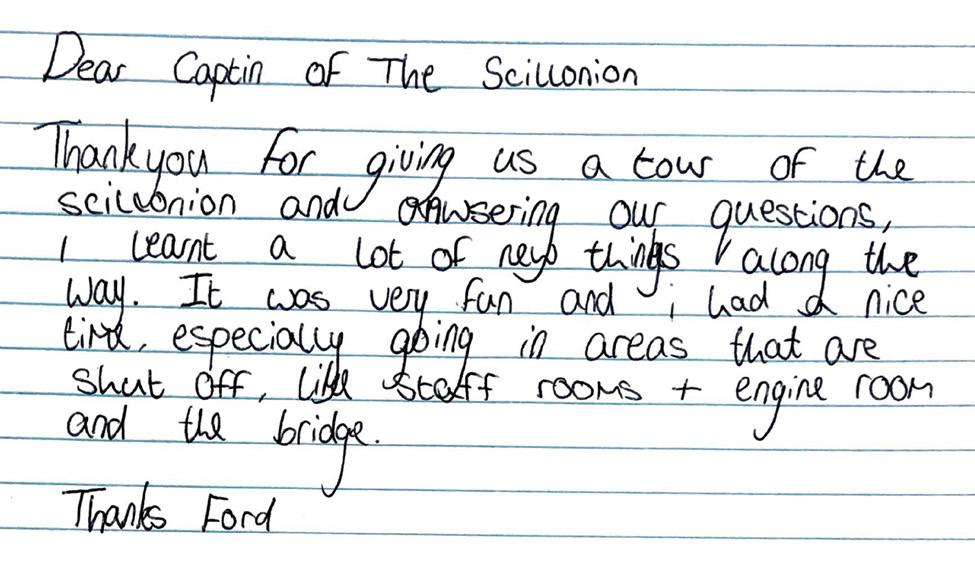 Dear Captin of The Scillonion
Thankyou for giving us a tour of the
scillonion and anwsering our questions,
I learnt a lot of new things along the
way. It was very fun and i had a nice
time, especially going in areas that are
shut off, like staff rooms + engine room
and the bridge.
Thanks Ford